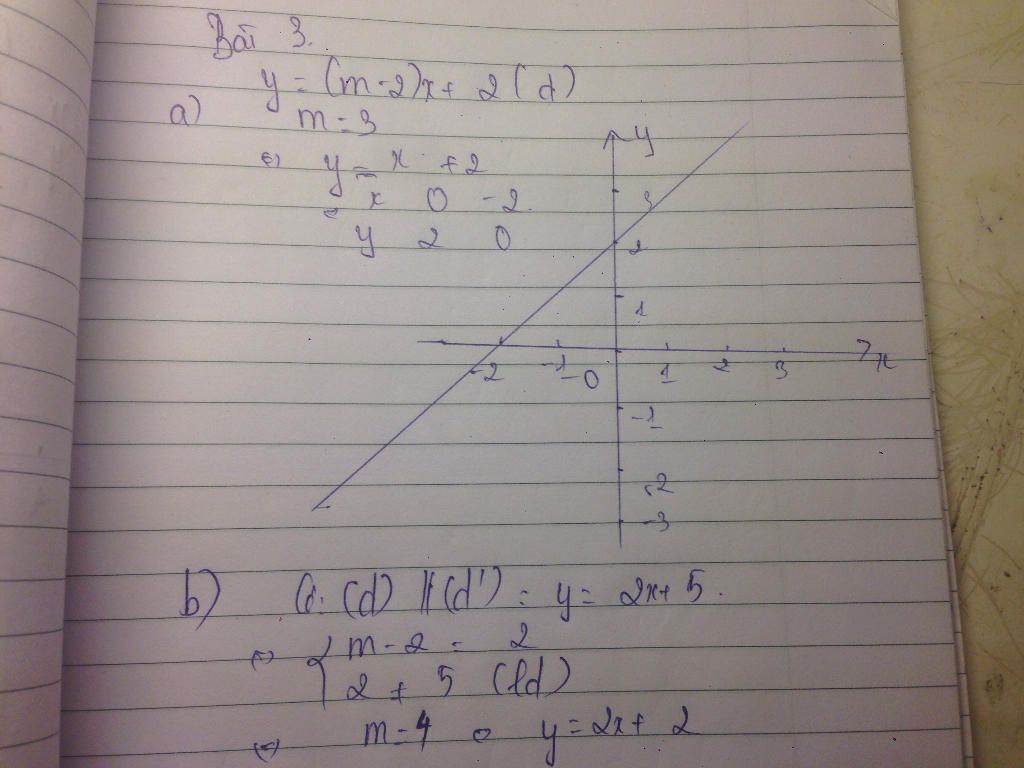 Bài 3.
y = (m-2)x + 2 (d)
a) m = 3
⇔ y = x + 2
x 0 -2
y 2 0
y
3
2
1
-2 -1 0 1 2 3 x
-1
-2
-3
b) (d) // (d') = y = 2x + 5.
⇔ { m - 2 = 2
2 ≠ 5 (lđ)
⇔ m = 4 y = 2x + 2